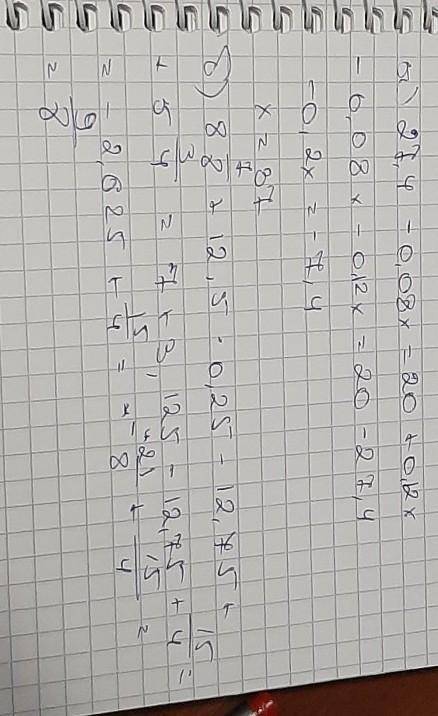 5) 27,4 - 0,08x = 20 + 0,12x
- 0,08x - 0,12x = 20 - 27,4
-0,2x = -7,4
x = 37
+ 12,5 · 0,25 - 12,75 +
= 7 + 3,125 - 12,75 + 15/4 =
= -2,625 + 15/4 = -21/8 + 15/4 =
= 9/8